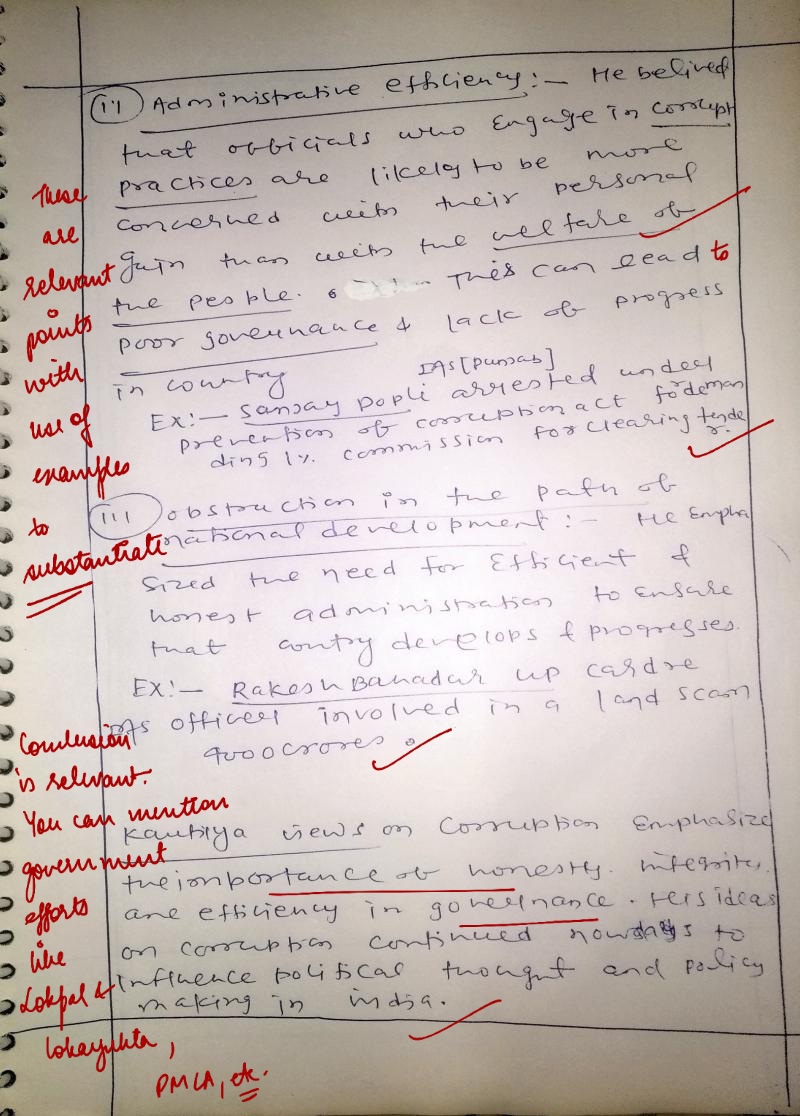 (ii) Administrative efficiency :- He belived
that officials who engage in corrupt
practices are likely to be more
concerned with their personal
gain than with the welfare of
the people. This can lead to
poor governance & lack of progress
in country
IAS [Punjab]
Ex:- Sanjay Popli arrested under
prevention of corruption act for deman
ding 1% commission for clearing tende
r.
(iii) obstruction in the path of
national development :- He Empha
sized the need for Efficient &
honest administration to ensure
that contry develops & progresses.
EX:- Rakesh Bahadar UP cardre
IAS officer involved in a land scam
4000 crores.
Kautilya views on Corruption Emphasize
the importance of honesty. integrity.
ane efficiency in governance. His ideas
on corruption continued nowdays to
influence political thought and policy
making in india.
These
are
relevant
points
with
use of
examples
to
substantiate
Conclusion
is relevant.
You can mention
government
efforts
like
Lokpal &
lokayukta,
PMLA, etc.